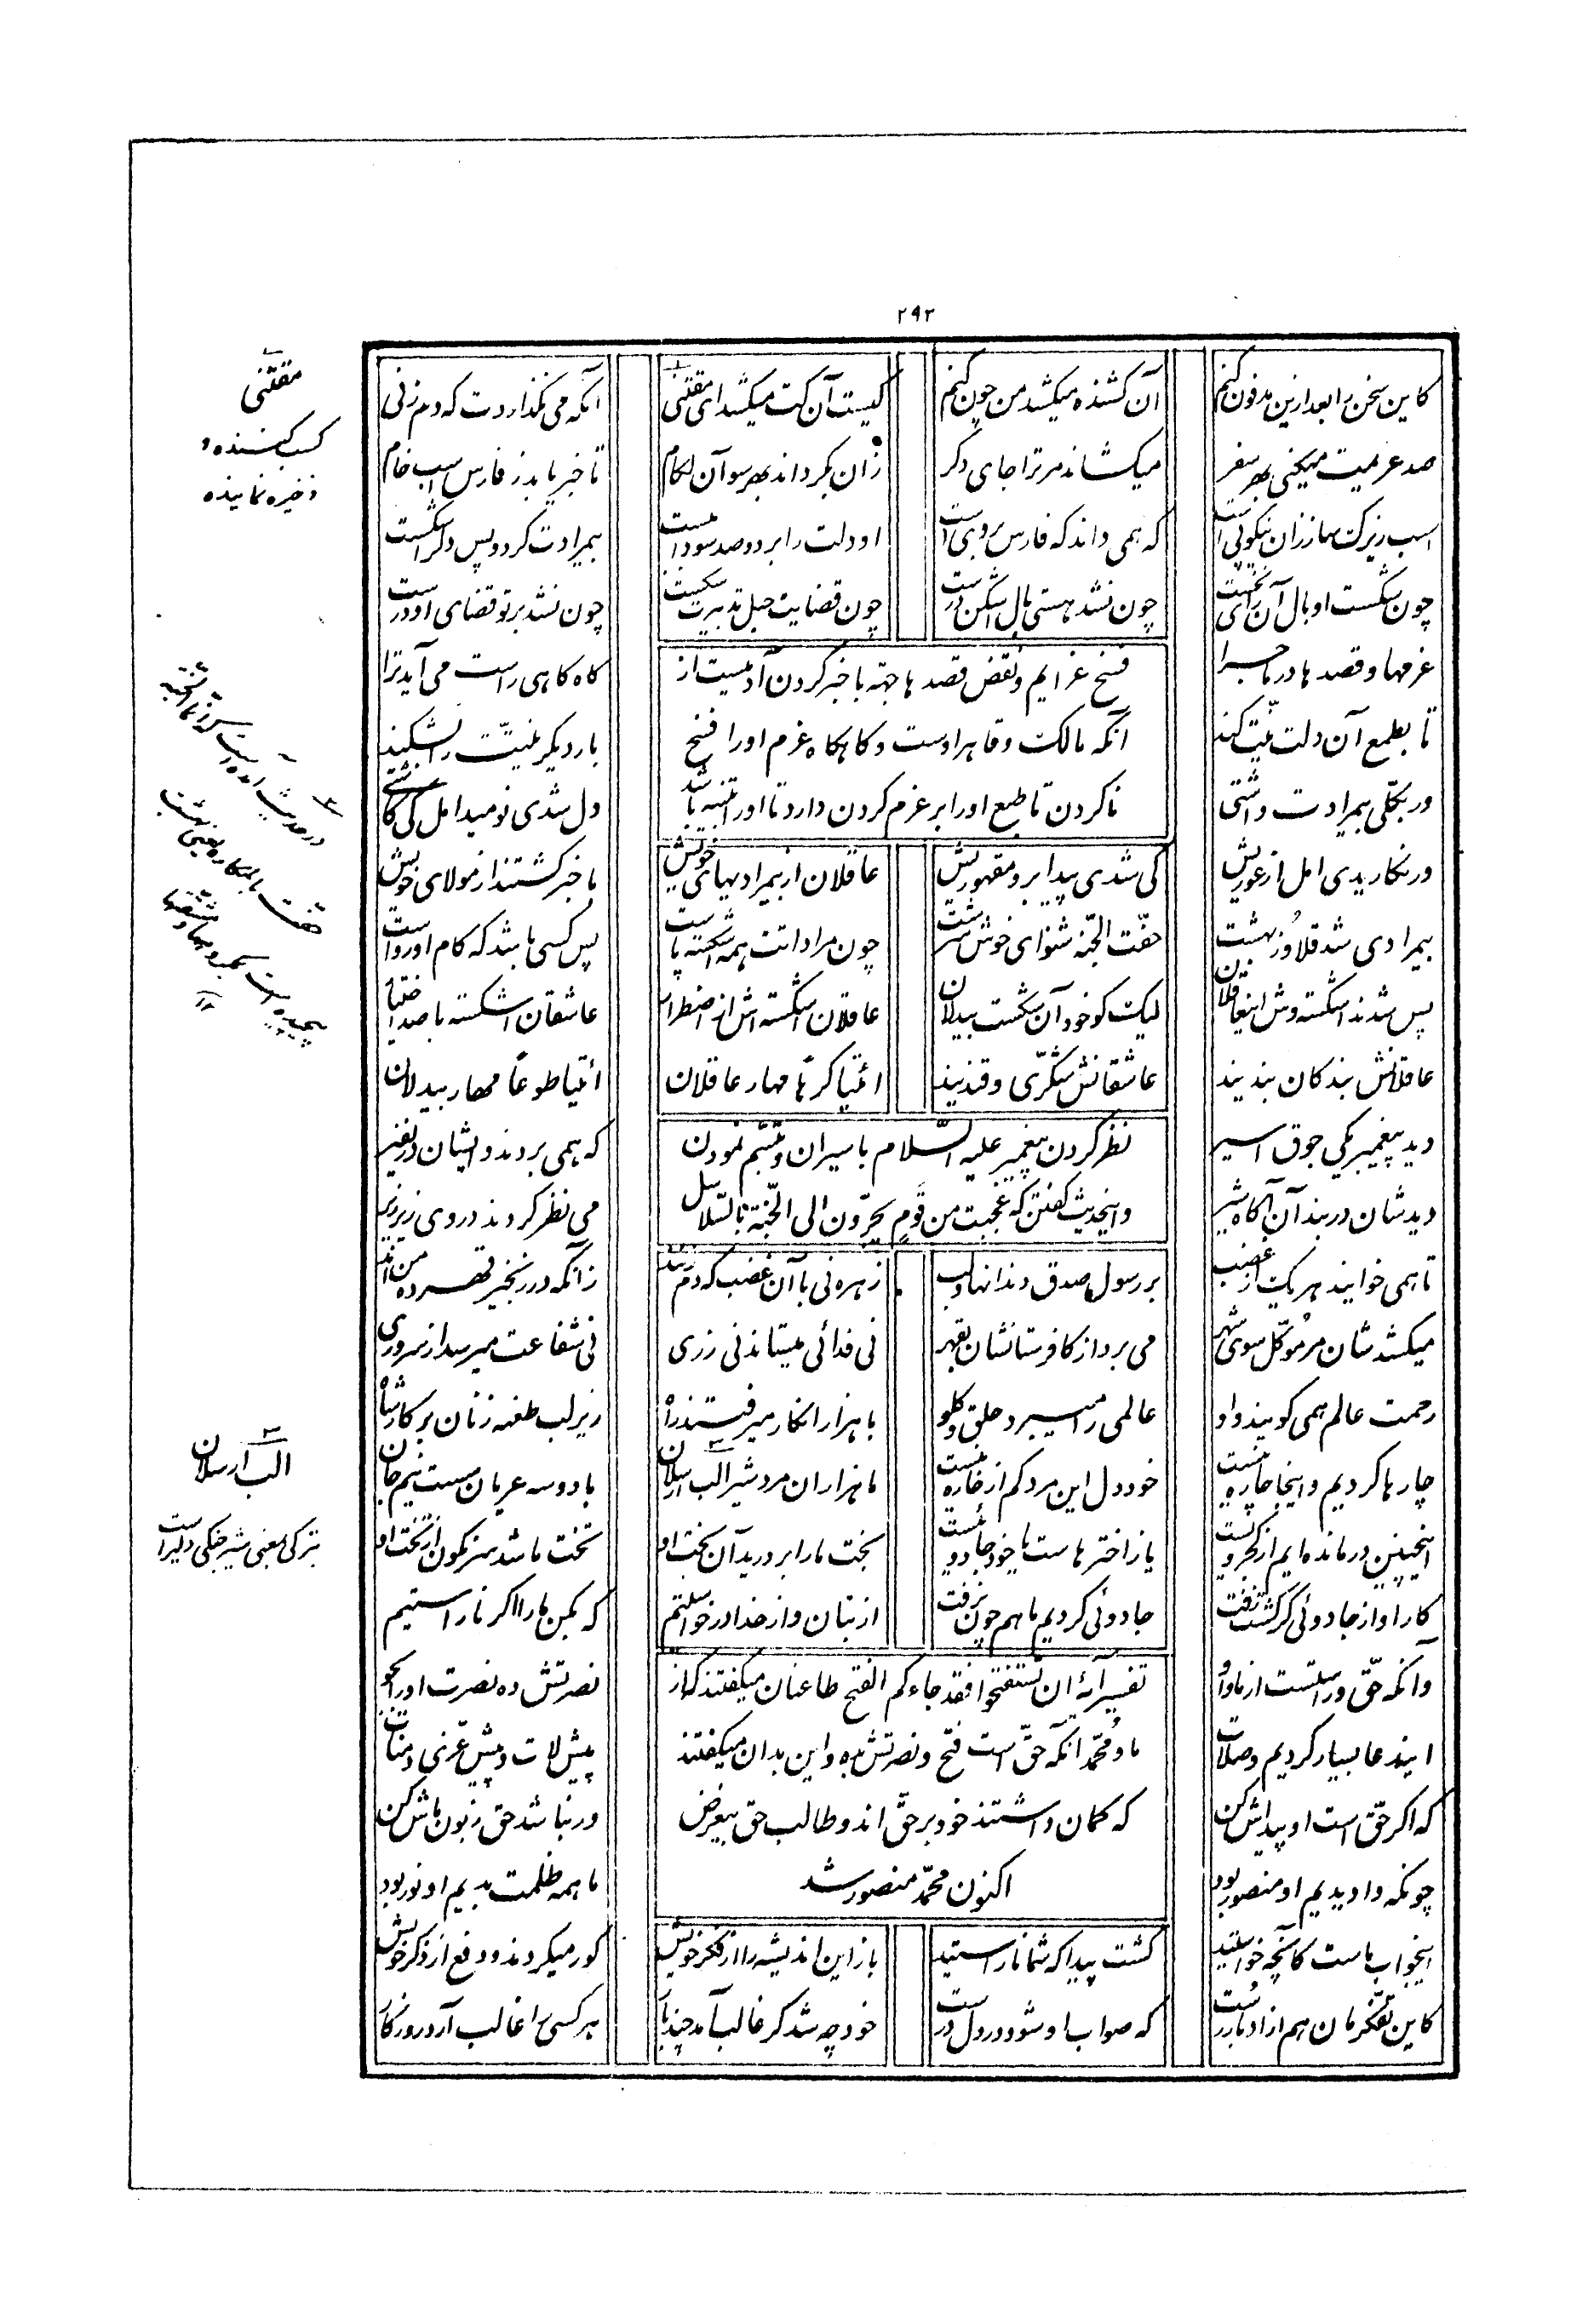 ۲۹۲
کاین سخن را بعد ازین مدفون کنم آن کشنده میکشد من چون کنم کیست آن کت میکشد ای مقتنی آنکه می نگذاردت که دم زنی
صد عزیمت میکنی بهر سفر میکشاند مر ترا جای دگر زان بگرداند بهر سو آن لگام تا خبر یابد ز فارس اسب خام
اسب زیرک سار زان نیکو پی است که همی داند که فارس بر وی است او دلت را بر دو صد سودا ببست بیمرادت کرد و پس دل را شکست
چون شکست او بال آن رای نخست چون نشد هستی بال اشکن درست چون قضایت حبل تدبیرت سکست چون نشد بر تو قضای او درست
فسخ عزایم و نقض قصدها جهة با خبر کردن آدمیست از
آنکه مالک و قاهر اوست و گاهگاه عزم او را فسخ
ناکردن تا طمع او را بر عزم کردن دارد تا او را تنبیه باشد
عزمها و قصدها در ماجرا گاه گاهی راست می آید ترا
تا بطمع آن دلت نیت کند بار دیگر نیتت را بشکند
ور بکلی بیمرادت داشتی دل شدی نومید امل کی کاشتی
ور نکاریدی امل از عوریش کی شدی پیدا برو مقهوریش عاقلان از بیمرادیهای خویش با خبر گشتند از مولای خویش
بیمرادی شد قلاوز بهشت حفت الجنه شنو ای خوش سرشت چون مرادات همه اشکسته پاست پس کسی باشد که کام او رواست
پس شدند اشکسته وش این عاقلان لیک کو خود آن شکست بیدلان عاقلان اشکسته اش از اضطرار عاشقان اشکسته با صد اختیار
عاقلانش بندگان بندیند عاشقانش شکری و قندیند ائتیا کرها مهار عاقلان ائتیا طوعا مهار بیدلان
نظر کردن پیغمبر علیه السلام باسیران و تبسم نمودن
و اینحدیث گفتن که عجبت من قوم یجرون الی الجنة بالسلاسل
دید پیغمبر یکی جوق اسیر که همی بردند و ایشان در نفیر
دیدشان در بند آن آگاه شیر می نظر کردند در وی زیر زیر
تا همی خوایید هر یک از غضب بر رسول صدق دندانها و لب زهره نی با آن غضب که دم زنند زانکه در زنجیر قهر ده منند
میکشدشان مر موکل سوی شهر می برد از کافرستانشان بقهر نی فدائی میستاند نی زری نی شفاعت میرسد از سروری
رحمت عالم همی گویند و او عالمی را میبرد حلق و گلو با هزار انکار میرفتند راه زیر لب طعنه زنان بر کار شاه
چارها کردیم و اینجا چاره نیست خود دل این مرد کم از خاره نیست ما هزاران مرد شیر الب ارسلان با دو سه عریان سست نیم جان
اینچنین درمانده ایم از کجرویست یا ز اخترهاست یا خود جادویست بخت ما را بر درید آن بخت او تخت ما شد سرنگون از تخت او
کار او از جادوئی گر گشت زفت جادوئی کردیم ما هم چون نرفت از بتان و از خدا در خواستیم که بکن ما را اگر ناراستیم
تفسیر آیۀ ان تستفتحوا فقد جاءکم الفتح طاعنان میگفتند که از
ما و محمد آنکه حق است فتح و نصرتش ده و این بدان میگفتند
که گمان داشتند خود بر حق اند و طالب حق بیغرض
اکنون محمد منصور شد
وانکه حق و راستست از ما و او نصرتش ده نصرت او را بجو
ایندعا بسیار کردیم و صلات پیش لات و پیش عزی و منات
که اگر حق است او پیداش کن ور نباشد حق زبون ماش کن
چونکه وا دیدیم او منصور بود ما همه ظلمت بدیم او نور بود
اینجواب ماست کانچه خواستید گشت پیدا که شما ناراستید باز این اندیشه را از فکر خویش کور میکردند و دفع از ذکر خویش
کاین تفکرمان هم از ادبار رست که صواب او شود در دل درست خود چه شد گر غالب آمد چند بار هر کسی را غالب آرد روزگار
مقتنی
کسب کننده و
ذخیره نماینده
در حدیث آمده است
حفت بالمکاره یعنی بهشت
پیچیده است
۳
الب ارسلان
بترکی یعنی شیر جنگی دلیر است